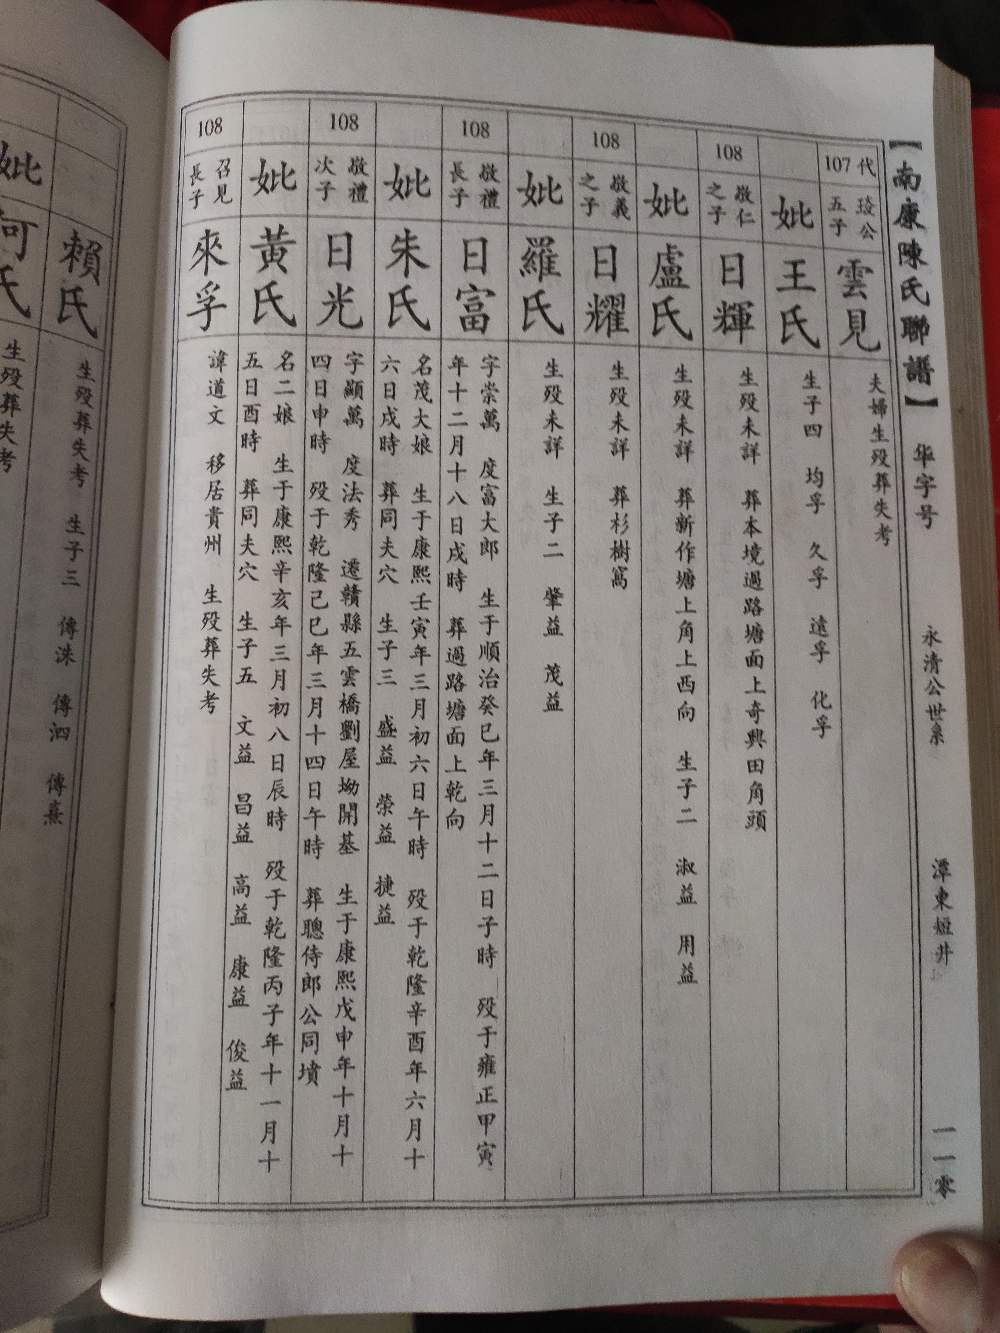 【南康陳氏聯譜】 华字号 永清公世系 潭東短井 一一零
107 代
琻公
五子
雲見
夫婦生殁葬失考
妣
王氏
生子四 均孚 久孚 遠孚 化孚
108
敬仁
之子
日輝
生殁未詳 葬本境過路塘面上奇興田角頭
妣
盧氏
生殁未詳 葬新作塘上角上西向 生子二 淑益 用益
108
敬義
之子
日耀
生殁未詳 葬杉樹窩
妣
羅氏
生殁未詳 生子二 肇益 茂益
108
敬禮
長子
日富
字崇萬 度富大郎 生于順治癸巳年三月十二日子時 殁于雍正甲寅
年十二月十八日戌時 葬過路塘面上乾向
妣
朱氏
名茂大娘 生于康熙壬寅年三月初六日午時 殁于乾隆辛酉年六月十
六日戌時 葬同夫穴 生子三 盛益 榮益 捷益
108
敬禮
次子
日光
字顯萬 度法秀 遷贛縣五雲橋劉屋坳開基 生于康熙戊申年十月十
四日申時 殁于乾隆己巳年三月十四日午時 葬聰侍郎公同墳
妣
黃氏
名二娘 生于康熙辛亥年三月初八日辰時 殁于乾隆丙子年十一月十
五日酉時 葬同夫穴 生子五 文益 昌益 高益 康益 俊益
108
召見
長子
來孚
諱道文 移居貴州 生殁葬失考
賴氏
生殁葬失考 生子三 傳洙 傳泗 傳熹
妣
何氏
生殁葬失考